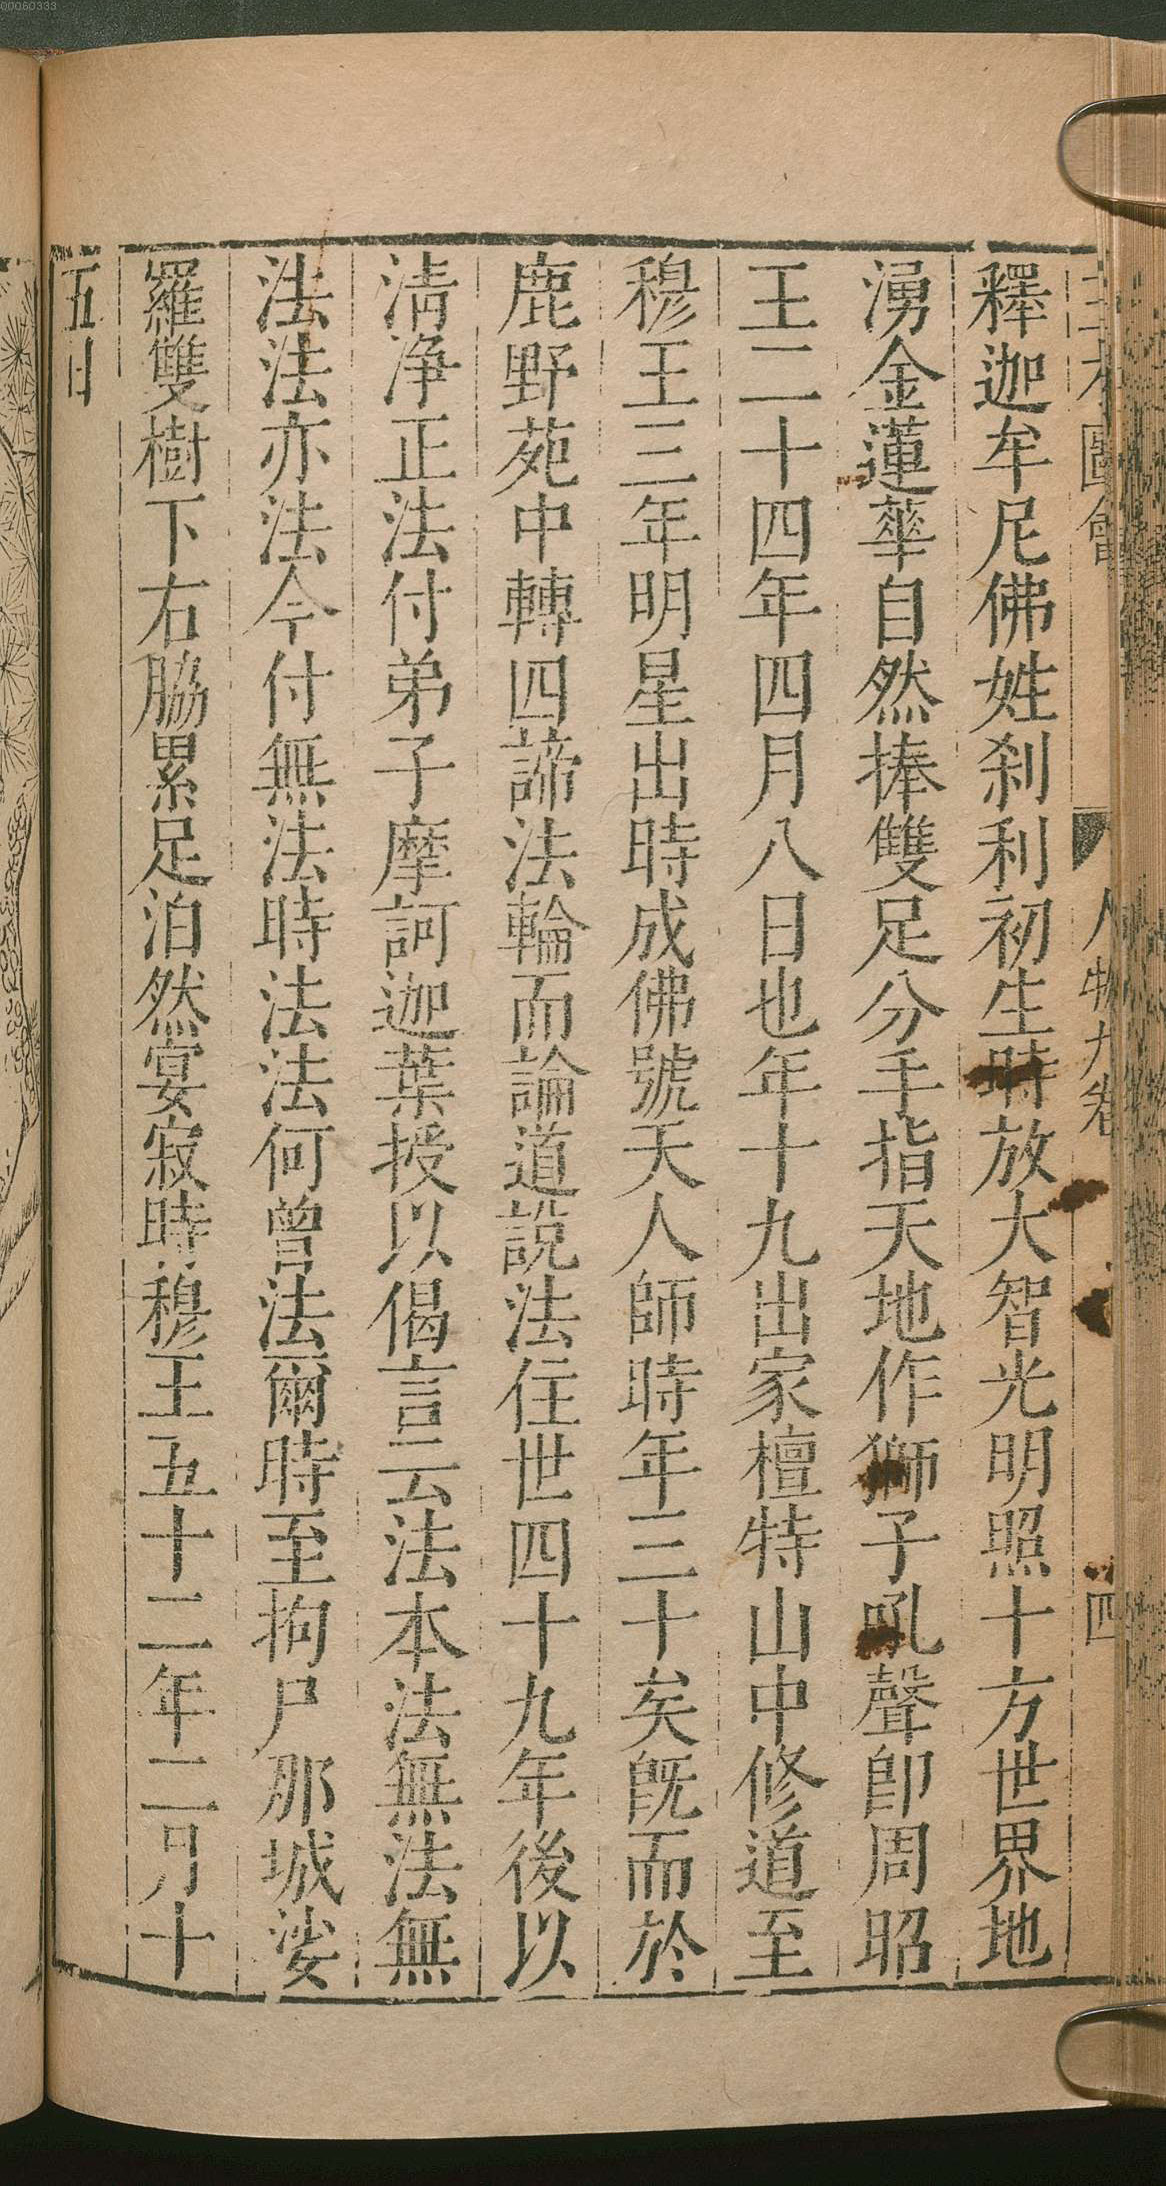 圖會 人物九卷 四
釋迦牟尼佛姓刹利初生時放大智光明照十方世界地
湧金蓮華自然捧雙足分手指天地作獅子吼聲卽周昭
王二十四年四月八日也年十九出家檀特山中修道至
穆王三年明星出時成佛號天人師時年三十矣既而於
鹿野苑中轉四諦法輪而論道說法住世四十九年後以
淸淨正法付弟子摩訶迦葉授以偈言云法本法無法無
法法亦法今付無法時法法何曾法爾時至拘尸那城娑
羅雙樹下右脇累足泊然宴寂時穆王五十二年二月十
五日
00060333